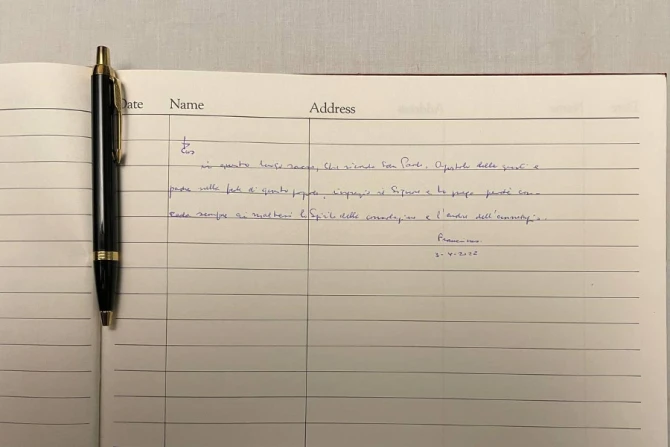 Date Name Address
in questo luogo sacro, che ricorda San Paolo, apostolo delle genti e
padre nella fede di questo popolo, ringrazio il Signore e lo prego perché con-
ceda sempre ai maltesi lo Spirito della consolazione e l'ardore dell'annuncio.
Francesco
3-4-2022